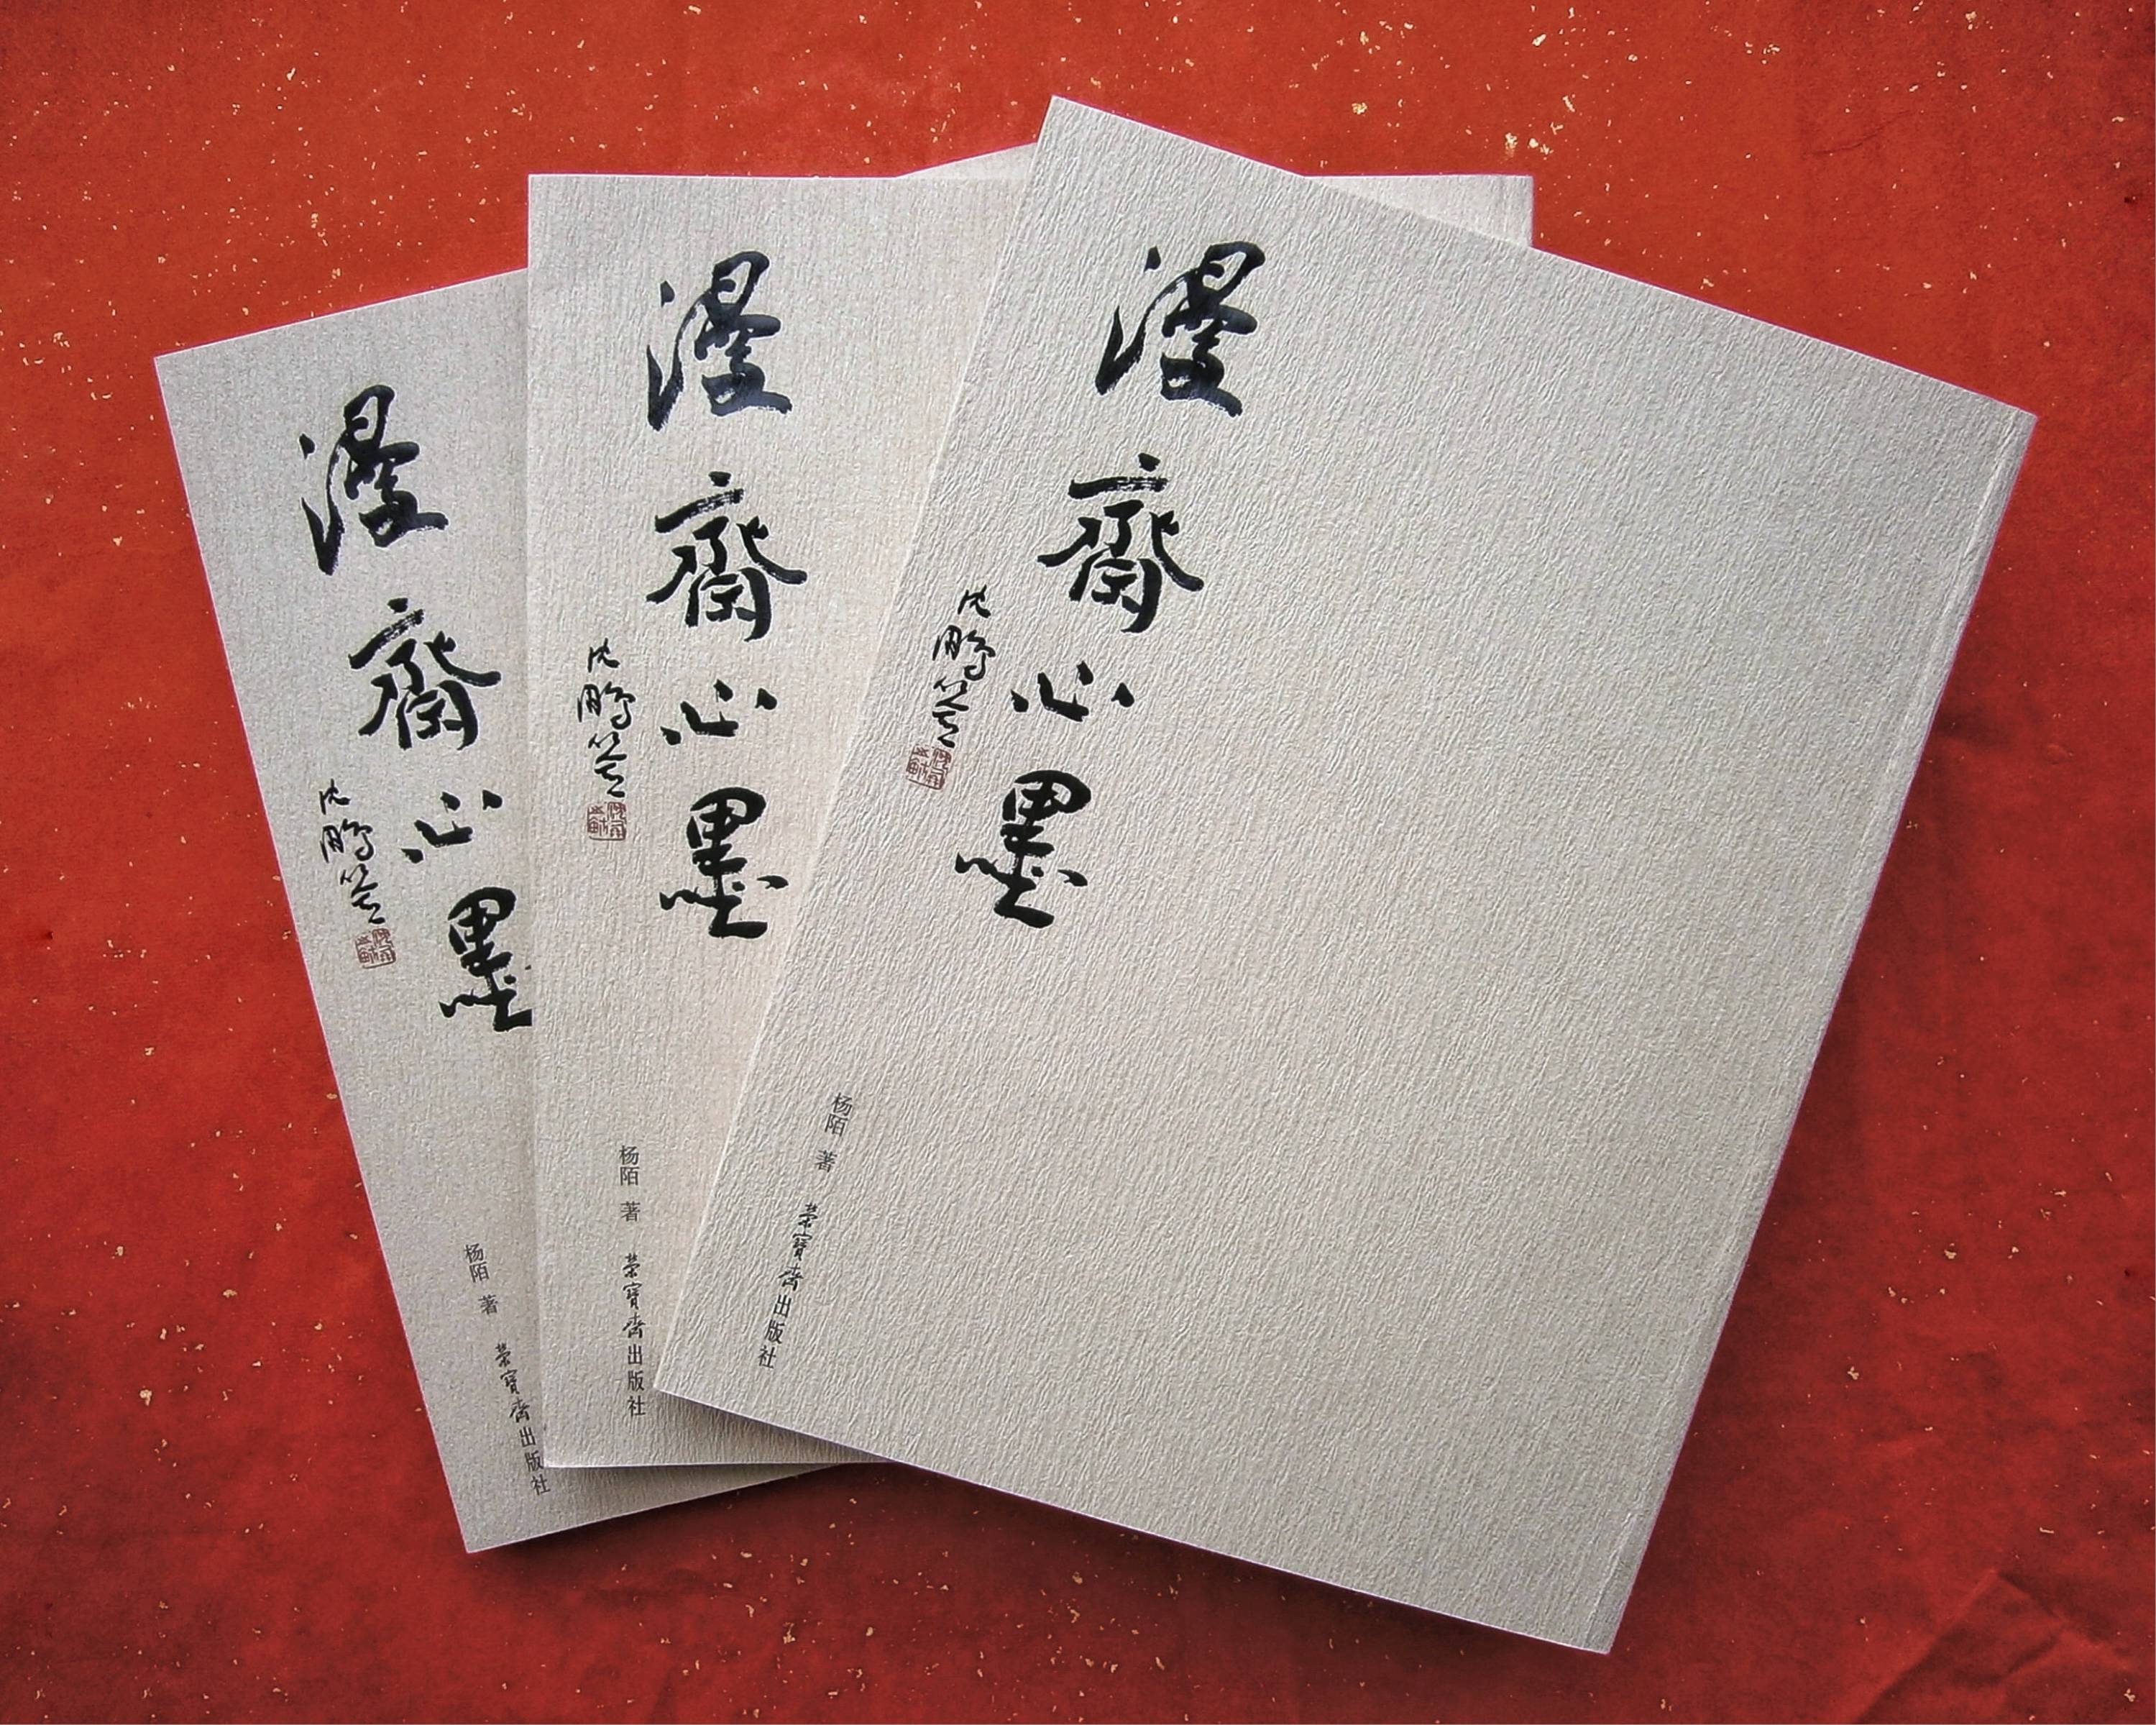 漫齋心墨
沈鹏签
杨陌 著
荣寳斋出版社
漫齋心墨
沈鹏签
杨陌 著
荣寳斋出版社
漫齋心墨
沈鹏签
杨陌 著
荣寳斋出版社